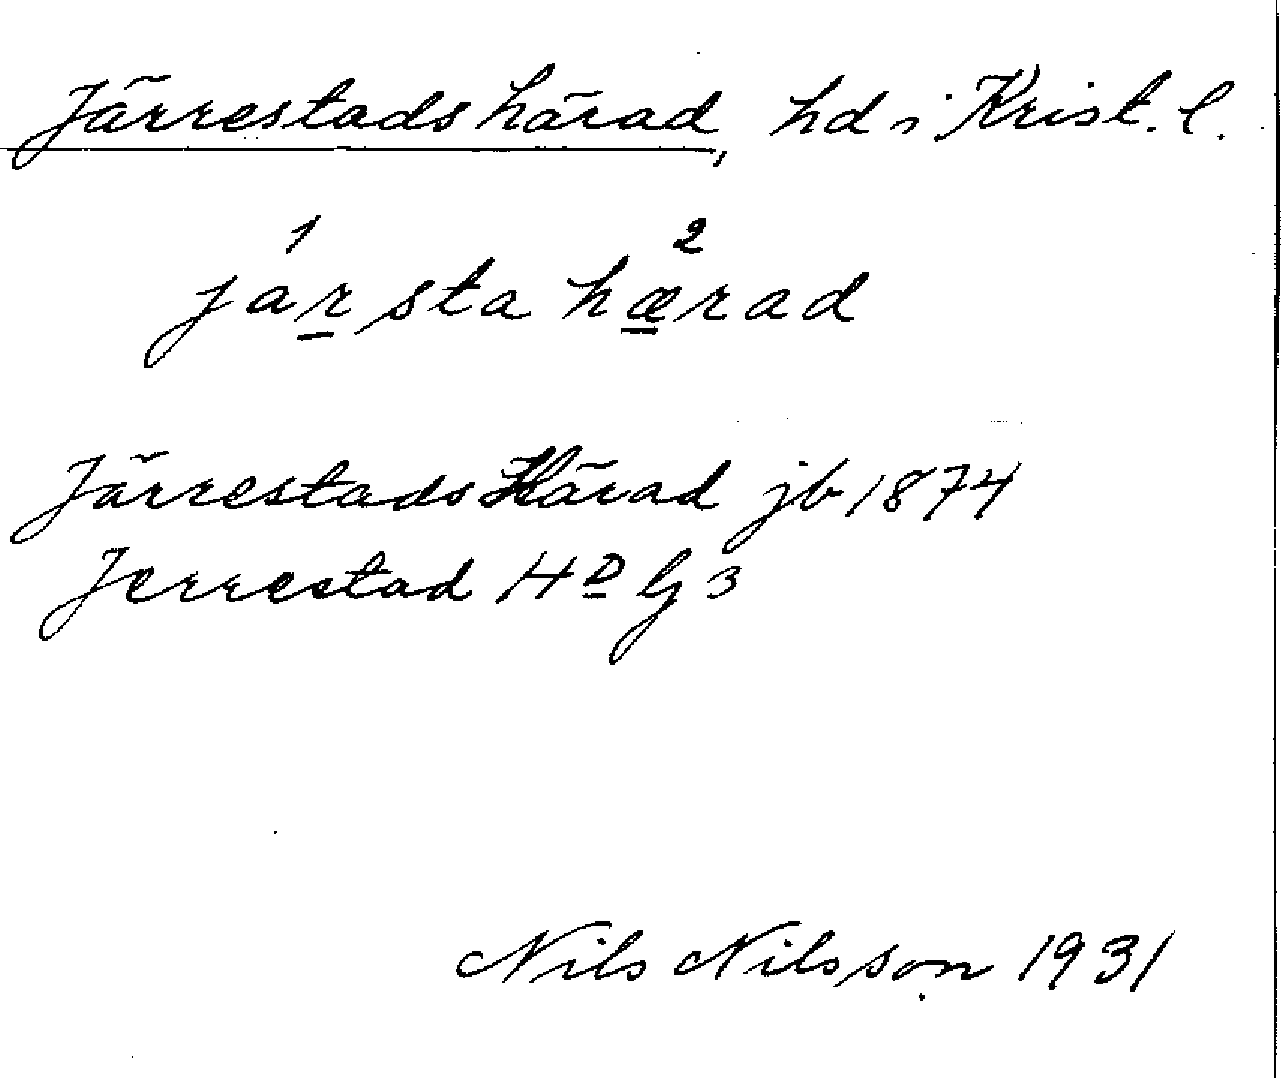 Järrestads härad, hd i Krist. l.
1 2
jarsta hærad
Järrestads Härad jb 1874
Jerrestad HD Gj 3
Nils Nilsson 1931